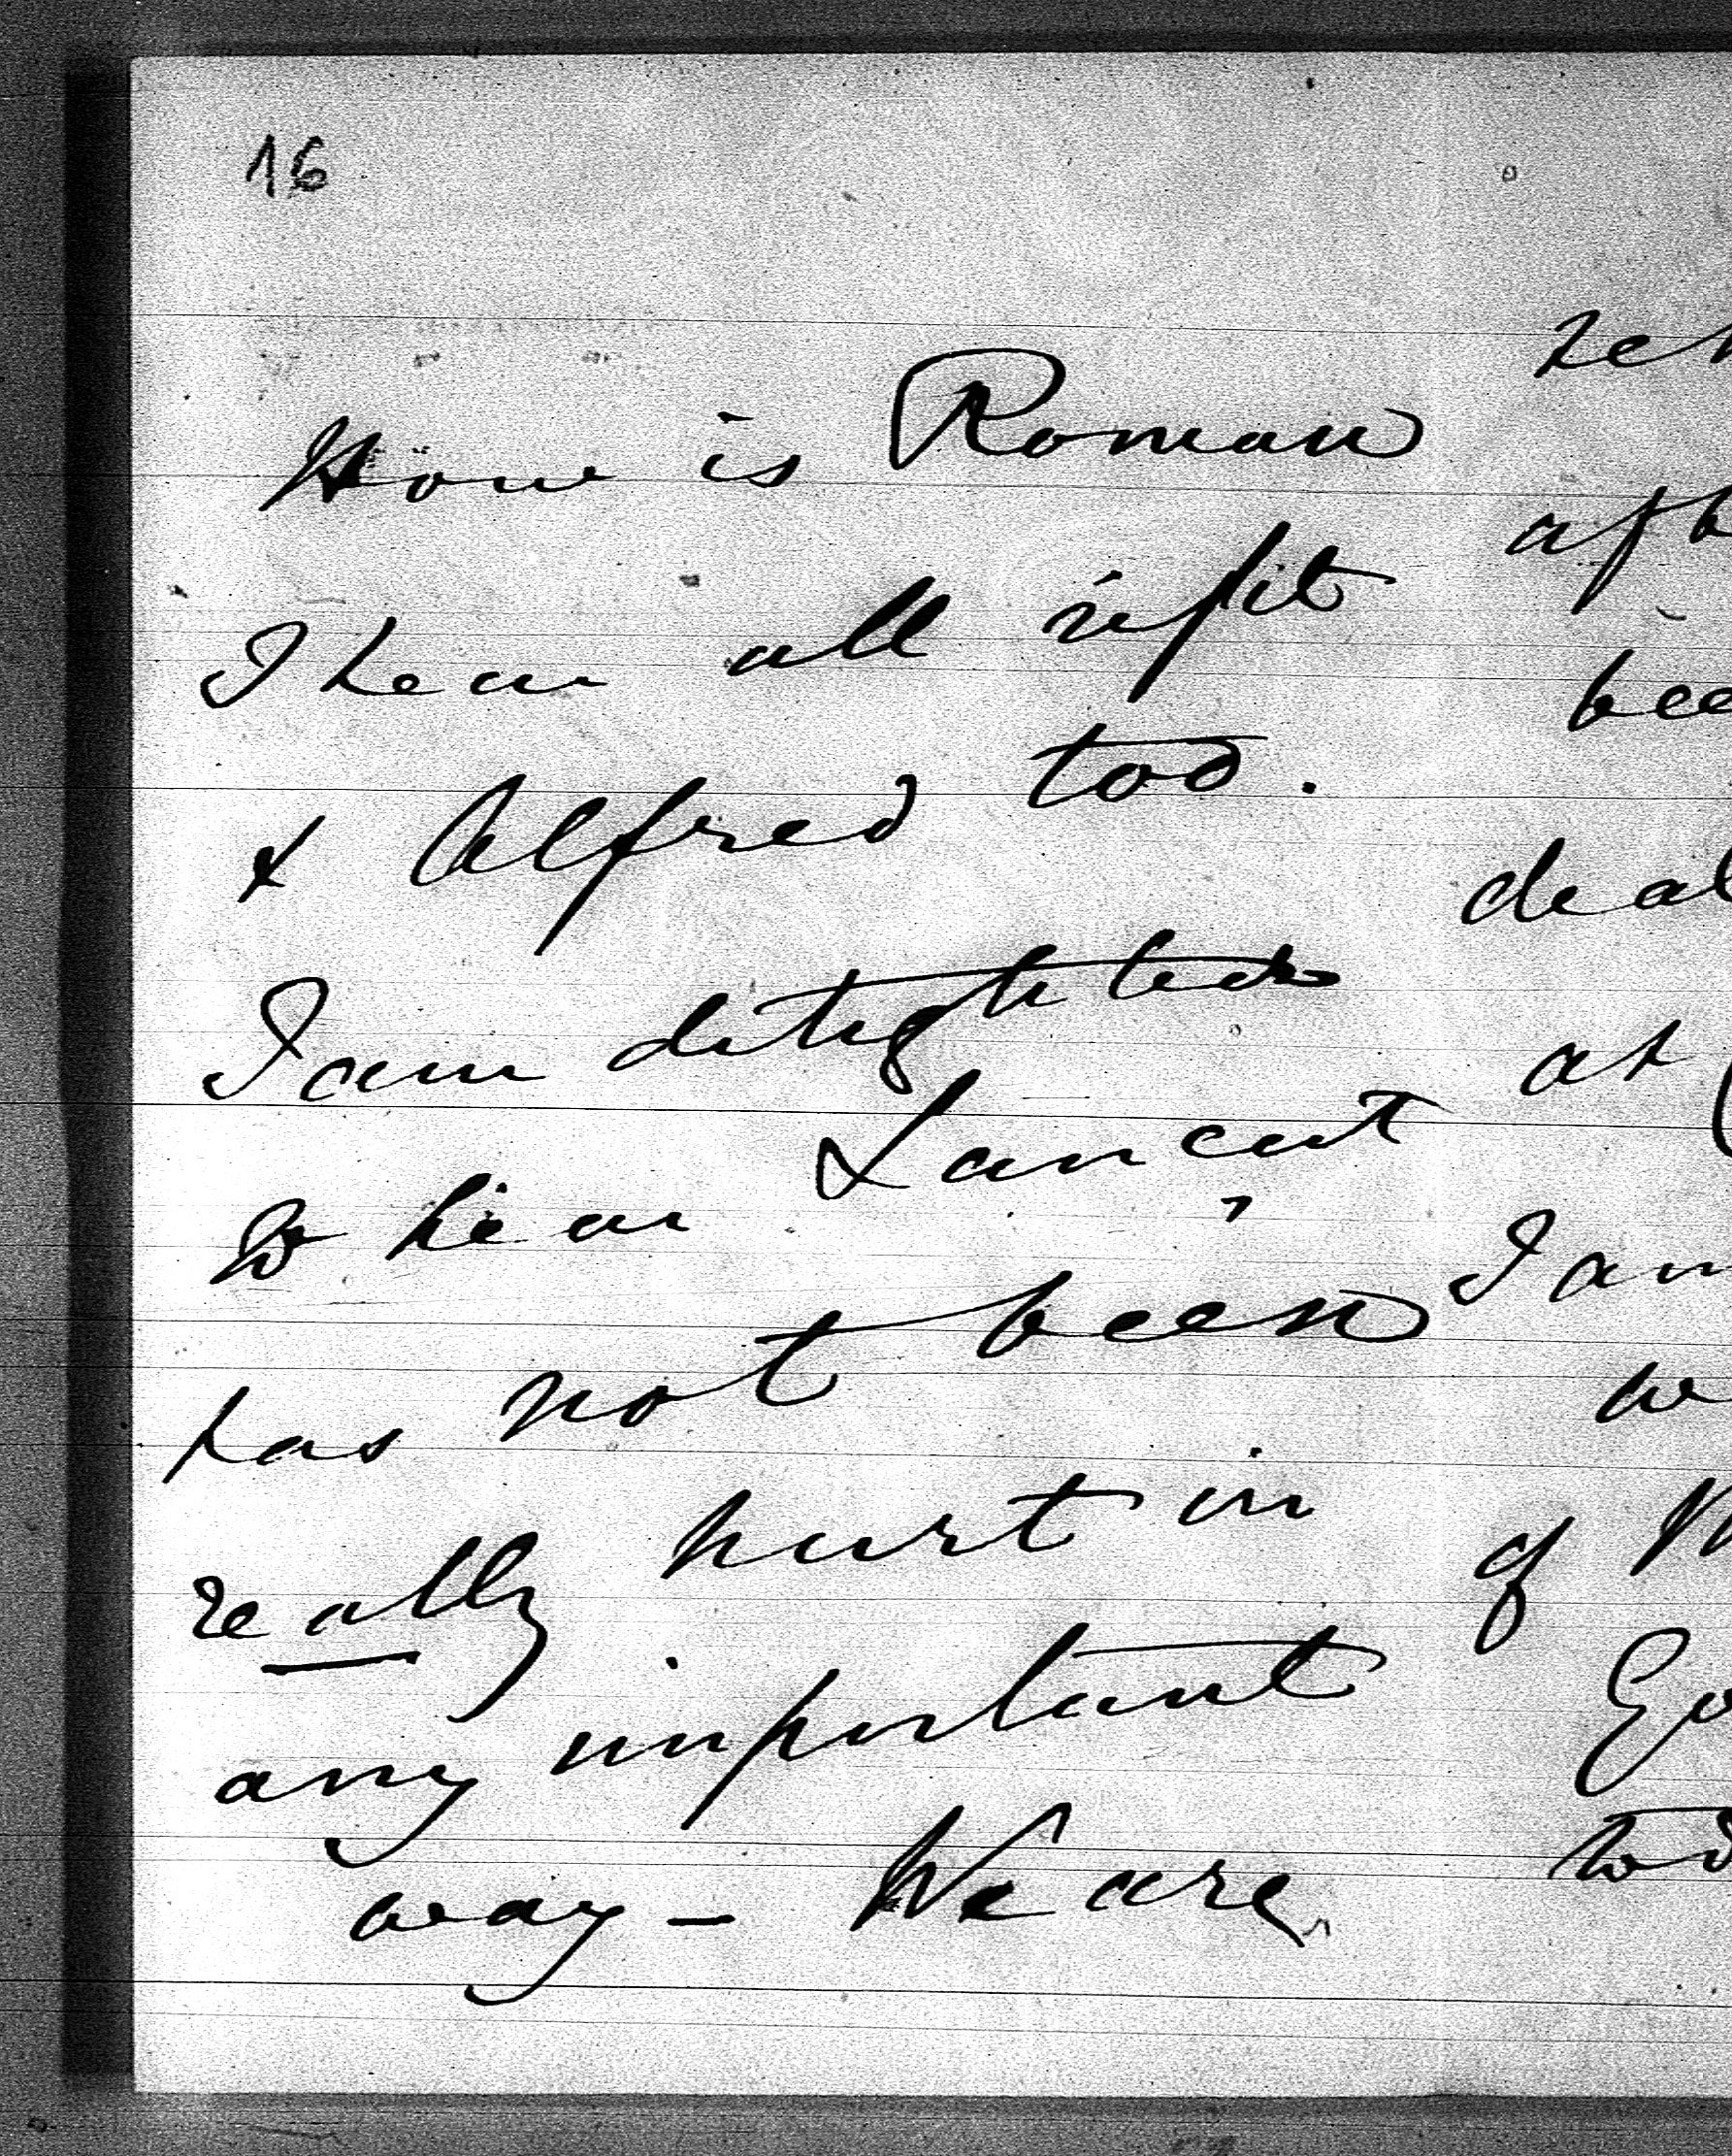 16
How is Roman
I hear all
& Alfred too.
I am delighted
to hear Lancut
has not been
really hurt in
any important
way – We are
I am
of